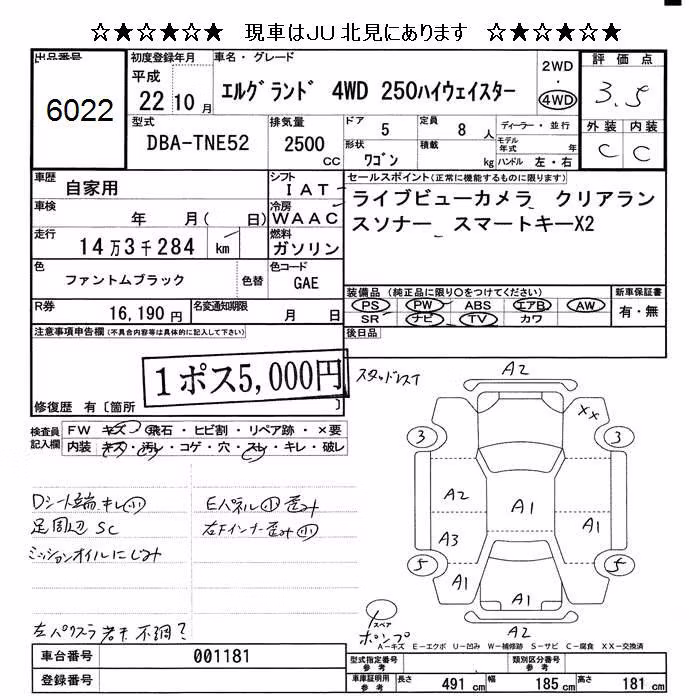 ☆★☆★☆★ 現車はJU北見にあります ☆★☆★☆★
出品番号
6022
初度登録年月
平成
22 10 月
車名・グレード
エルグランド 4WD 250ハイウェイスター
2WD
・
4WD
評価点
3.5
外装 内装
C C
型式
DBA-TNE52
排気量
2500
CC
ドア
5
定員
8 人
形状
ワゴン
積載
kg
ディーラー・並行
モデル
年式 年
ハンドル 左・右
車歴
自家用
シフト
IAT
車検
年 月( 日)
冷房
WAAC
走行
14万3千284 km
燃料
ガソリン
色
ファントムブラック
色替
色コード
GAE
R券
16,190 円
名変通知期限
月 日
セールスポイント(正常に機能するものに限ります)
ライブビューカメラ クリアラン
スソナー スマートキーX2
装備品 (純正品に限り○をつけてください)
PS PW ABS エアB AW
SR ナビ TV カワ
新車保証書
有・無
後日品
注意事項申告欄(不具合内容等は具体的に記入して下さい)
1ポス5,000円
修復歴 有〔箇所 〕
検査員
記入欄
FW キズ・飛石・ヒビ割・リペア跡・×要
内装 キズ・汚レ・コゲ・穴・スレ・キレ・破レ
Dシート端キレ小
足周辺 SC
ミッションオイルにじみ
Eパネル小歪み
右下インナー歪み小
左パワスラ若干不調?
スタッドレス
A2
XX
3 3
A2 A1
A3 A1
5 5
A1 A1
A1
A2
スペア
ポンプ
A－キズ E－エクボ U－凹み W－補修跡 S－サビ C－腐食 XX－交換済
車台番号
001181
登録番号
型式指定番号
参考
類別区分番号
参考
車庫証明用
参考
長さ 491 cm 幅 185 cm 高さ 181 cm